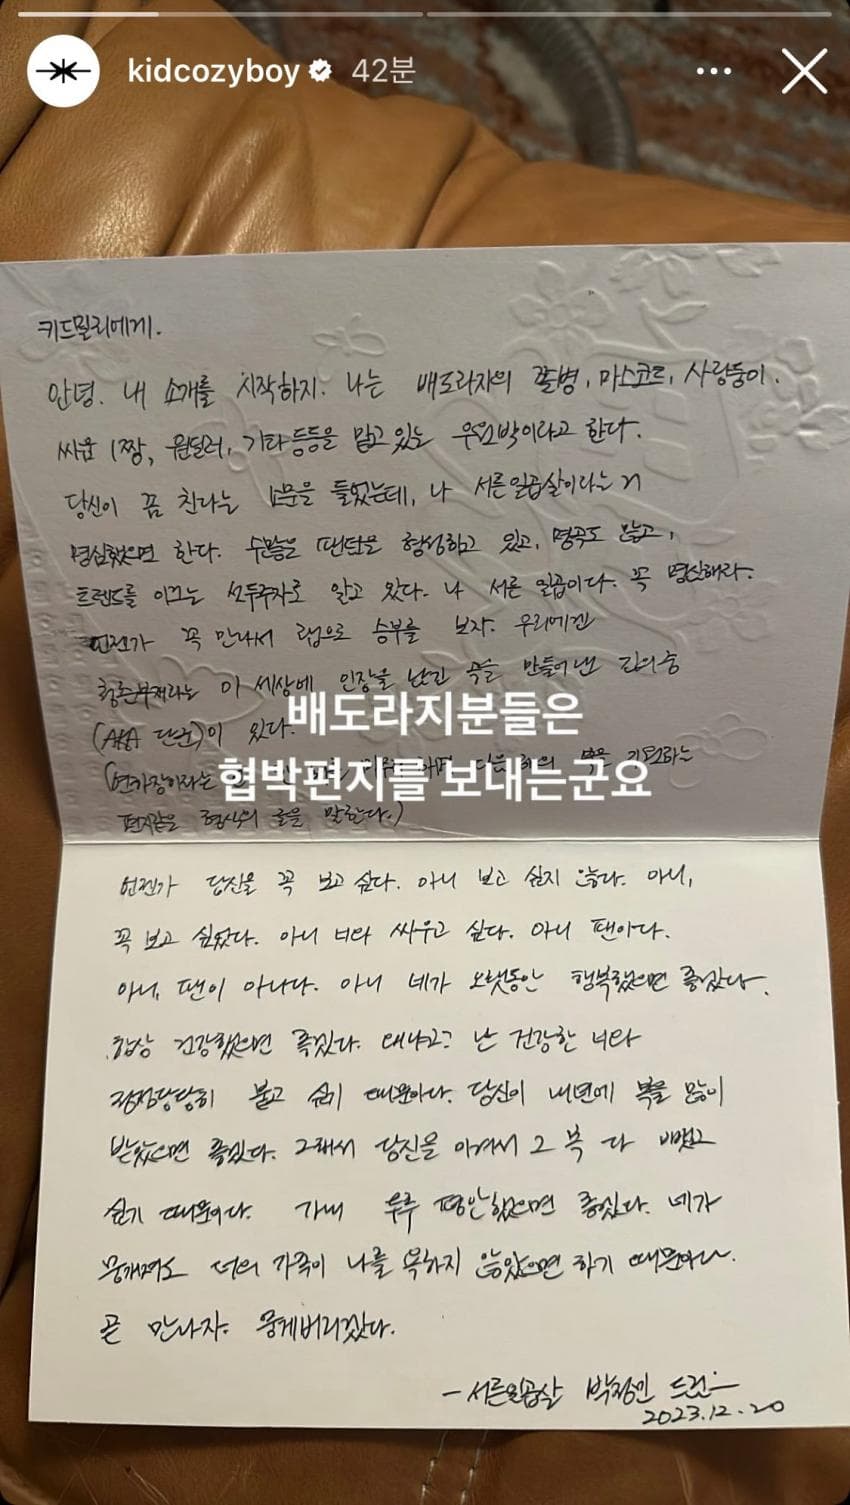 kidcozyboy 42분
키드밀리에게.
안녕. 내 소개를 시작하지. 나는 배도라지의 쫄병, 마스코트, 사랑둥이.
싸움 1짱, 원딜러, 기타등등을 맡고 있는 우요박이라고 한다.
당신이 꿈 찬다는 소문을 들었는데, 나 서른일곱살이라는 거
명심했으면 한다. 수많은 팬단을 형성하고 있고, 명곡도 많고,
트렌드를 이끄는 선두주자로 알고 있다. 나 서른 일곱이다. 꼭 명심해라.
언젠가 꼭 만나서 랩으로 승부를 보자. 우리에겐
청춘부져라는 이 세상에 인장을 남긴 곡을 만들어 낸
(AKA 단군)이 있다.
배도라지분들은
협박편지를 보내는군요
(연가장이라는
편지같은 형식의 글을 말한다.)
언젠가 당신을 꼭 보고 싶다. 아니 보고 싶지 않다. 아니,
꼭 보고 싶었다. 아니 너랑 싸우고 싶다. 아니 팬이다.
아니, 팬이 아니다. 아니 네가 오랫동안 행복했으면 좋겠다.
항상 건강했으면 좋겠다. 왜냐고? 난 건강한 너와
정정당당히 붙고 싶기 때문이다. 당신이 내년에 복을 많이
받았으면 좋겠다. 그래서 당신을 이겨서 그 복 다 뺏고
싶기 때문이다. 가내 두루 평안했으면 좋겠다. 네가
뭉개져도 너의 가족이 나를 욕하지 않았으면 하기 때문이다.
곧 만나자. 뭉게버리겠다.
- 서른일곱살 박정민 드림
2023.12.20